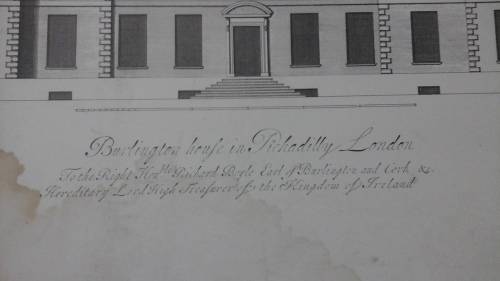 Burlington house in Pickadilly London
To the Right Hon.ble Richard Boyle Earl of Burlington and Cork &c.
Hereditary Lord High Treasurer of the Kingdom of Ireland